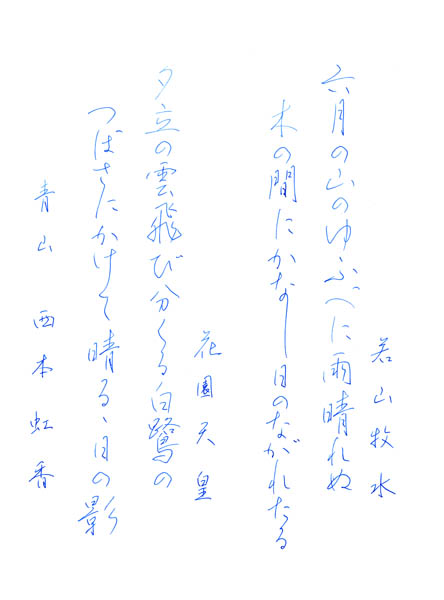 若山牧水
六月の山のゆふべに雨晴れぬ
木の間にかなし日のながれたる
花園天皇
夕立の雲飛び分くる白鷺の
つばさにかけて晴るゝ日の影
青山 西本虹香